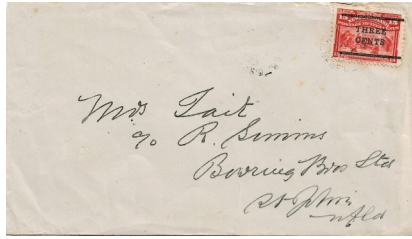 15 15
THREE
CENTS
Miss Tait
c/o R. Simms
Bowring Bros Ltd
St John's
Nfld